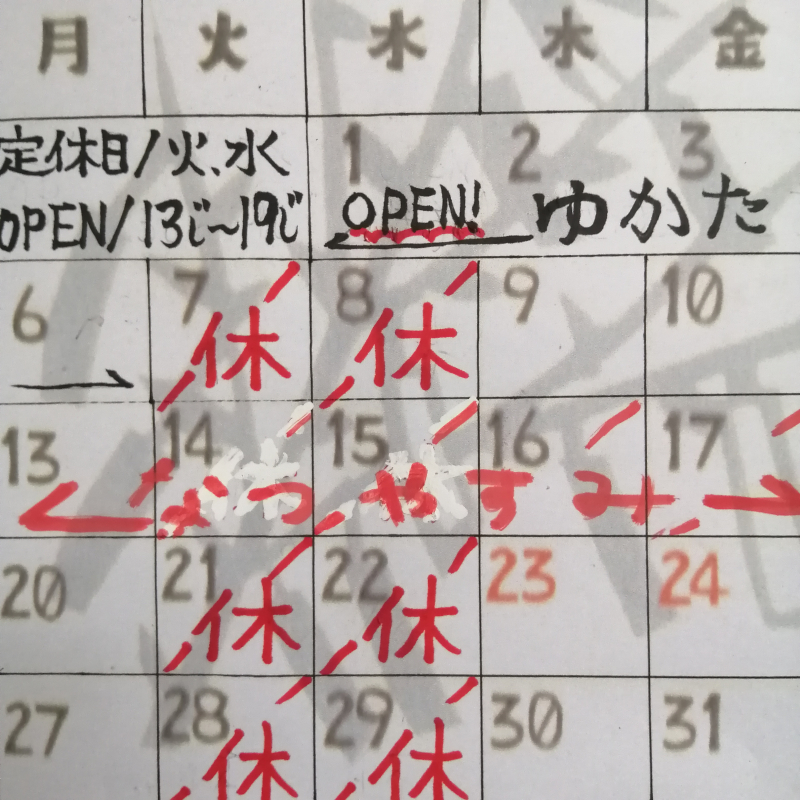 月 火 水 木 金
定休日/火、水
OPEN/13じ~19じ
1 2 3
OPEN! ゆかた
6 7 8 9 10
休 休
13 14 15 16 17
なつやすみ
20 21 22 23 24
休 休
27 28 29 30 31
休 休